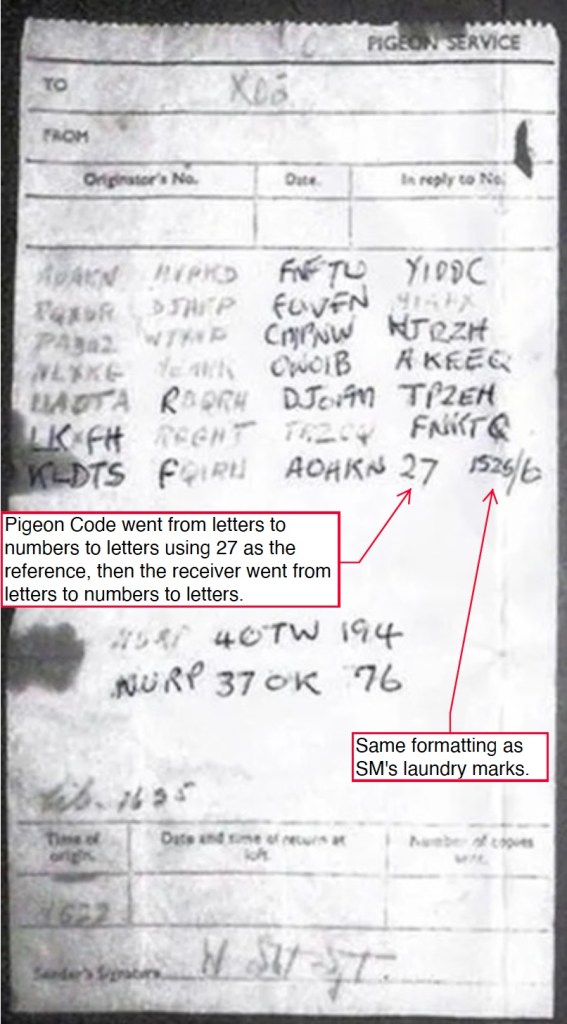 PIGEON SERVICE
TO X02
FROM
Originator's No. Date. In reply to No.
AOAKN HVPKD FNFTW YIDDC
DJHFP
CMPNW HJRZH
NLXKG OWOIB AKEEQ
RBQRH DJOFM TPZEH
LKXFH FNKTQ
KLDTS FQIRW AOAKN 27 1525/6
Pigeon Code went from letters to
numbers to letters using 27 as the
reference, then the receiver went from
letters to numbers to letters.
NURP 40TW 194
NURP 37OK 76
Same formatting as
SM's laundry marks.
lib. 1625
Time of origin. Date and time of return at loft. Number of copies sent.
1522
Sender's Signature W Stot Sjt.